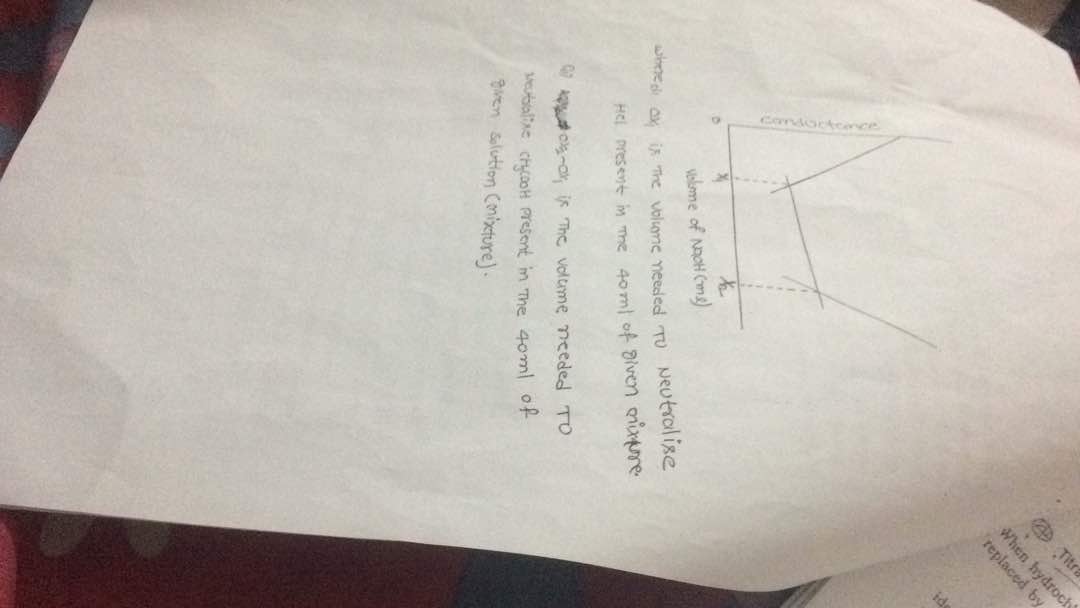 conductance
0
x₁
x₂
Volume of NaOH (ml)
where ox₁ is The volume needed TO Neutralise
Hcl present in The 40ml of given mixture.
ox₂-ox₁ is The volume needed TO
Neutralise CH₃COOH present in The 40ml of
given solution (mixture).
Titra
When hydroch
replaced by
ide